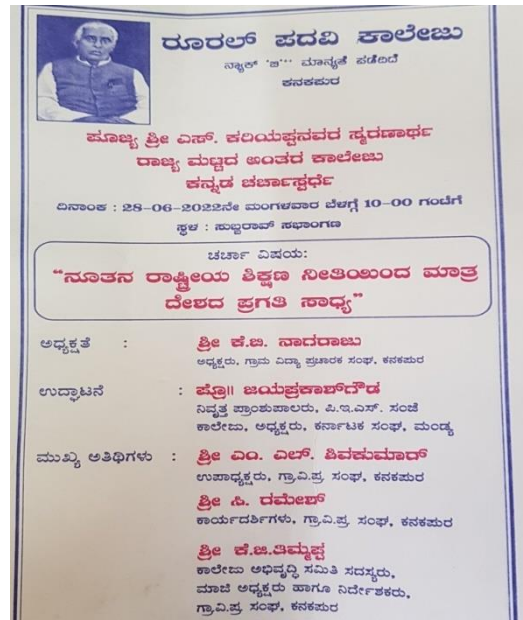 ರೂರಲ್ ಪದವಿ ಕಾಲೇಜು
ನ್ಯಾಕ್ 'ಬಿ++' ಮಾನ್ಯತೆ ಪಡೆದಿದೆ
ಕನಕಪುರ
ಪೂಜ್ಯ ಶ್ರೀ ಎಸ್. ಕರಿಯಪ್ಪನವರ ಸ್ಮರಣಾರ್ಥ
ರಾಜ್ಯ ಮಟ್ಟದ ಅಂತರ ಕಾಲೇಜು
ಕನ್ನಡ ಚರ್ಚಾಸ್ಪರ್ಧೆ
ದಿನಾಂಕ : 28-06-2022ನೇ ಮಂಗಳವಾರ ಬೆಳಗ್ಗೆ 10-00 ಗಂಟೆಗೆ
ಸ್ಥಳ : ಸುಬ್ಬರಾವ್ ಸಭಾಂಗಣ
ಚರ್ಚಾ ವಿಷಯ:
"ನೂತನ ರಾಷ್ಟ್ರೀಯ ಶಿಕ್ಷಣ ನೀತಿಯಿಂದ ಮಾತ್ರ
ದೇಶದ ಪ್ರಗತಿ ಸಾಧ್ಯ"
ಅಧ್ಯಕ್ಷತೆ : ಶ್ರೀ ಕೆ.ಬಿ. ನಾಗರಾಜು
ಅಧ್ಯಕ್ಷರು, ಗ್ರಾಮ ವಿದ್ಯಾ ಪ್ರಚಾರಕ ಸಂಘ, ಕನಕಪುರ
ಉದ್ಘಾಟನೆ : ಪ್ರೊ॥ ಜಯಪ್ರಕಾಶ್‌ಗೌಡ
ನಿವೃತ್ತ ಪ್ರಾಂಶುಪಾಲರು, ಪಿ.ಇ.ಎಸ್. ಸಂಜೆ
ಕಾಲೇಜು, ಅಧ್ಯಕ್ಷರು, ಕರ್ನಾಟಕ ಸಂಘ, ಮಂಡ್ಯ
ಮುಖ್ಯ ಅತಿಥಿಗಳು : ಶ್ರೀ ಎಂ. ಎಲ್. ಶಿವಕುಮಾರ್
ಉಪಾಧ್ಯಕ್ಷರು, ಗ್ರಾ.ವಿ.ಪ್ರ. ಸಂಘ, ಕನಕಪುರ
ಶ್ರೀ ಸಿ. ರಮೇಶ್
ಕಾರ್ಯದರ್ಶಿಗಳು, ಗ್ರಾ.ವಿ.ಪ್ರ. ಸಂಘ, ಕನಕಪುರ
ಶ್ರೀ ಕೆ.ಜಿ.ತಿಮ್ಮಪ್ಪ
ಕಾಲೇಜು ಅಭಿವೃದ್ಧಿ ಸಮಿತಿ ಸದಸ್ಯರು,
ಮಾಜಿ ಅಧ್ಯಕ್ಷರು ಹಾಗೂ ನಿರ್ದೇಶಕರು,
ಗ್ರಾ.ವಿ.ಪ್ರ. ಸಂಘ, ಕನಕಪುರ